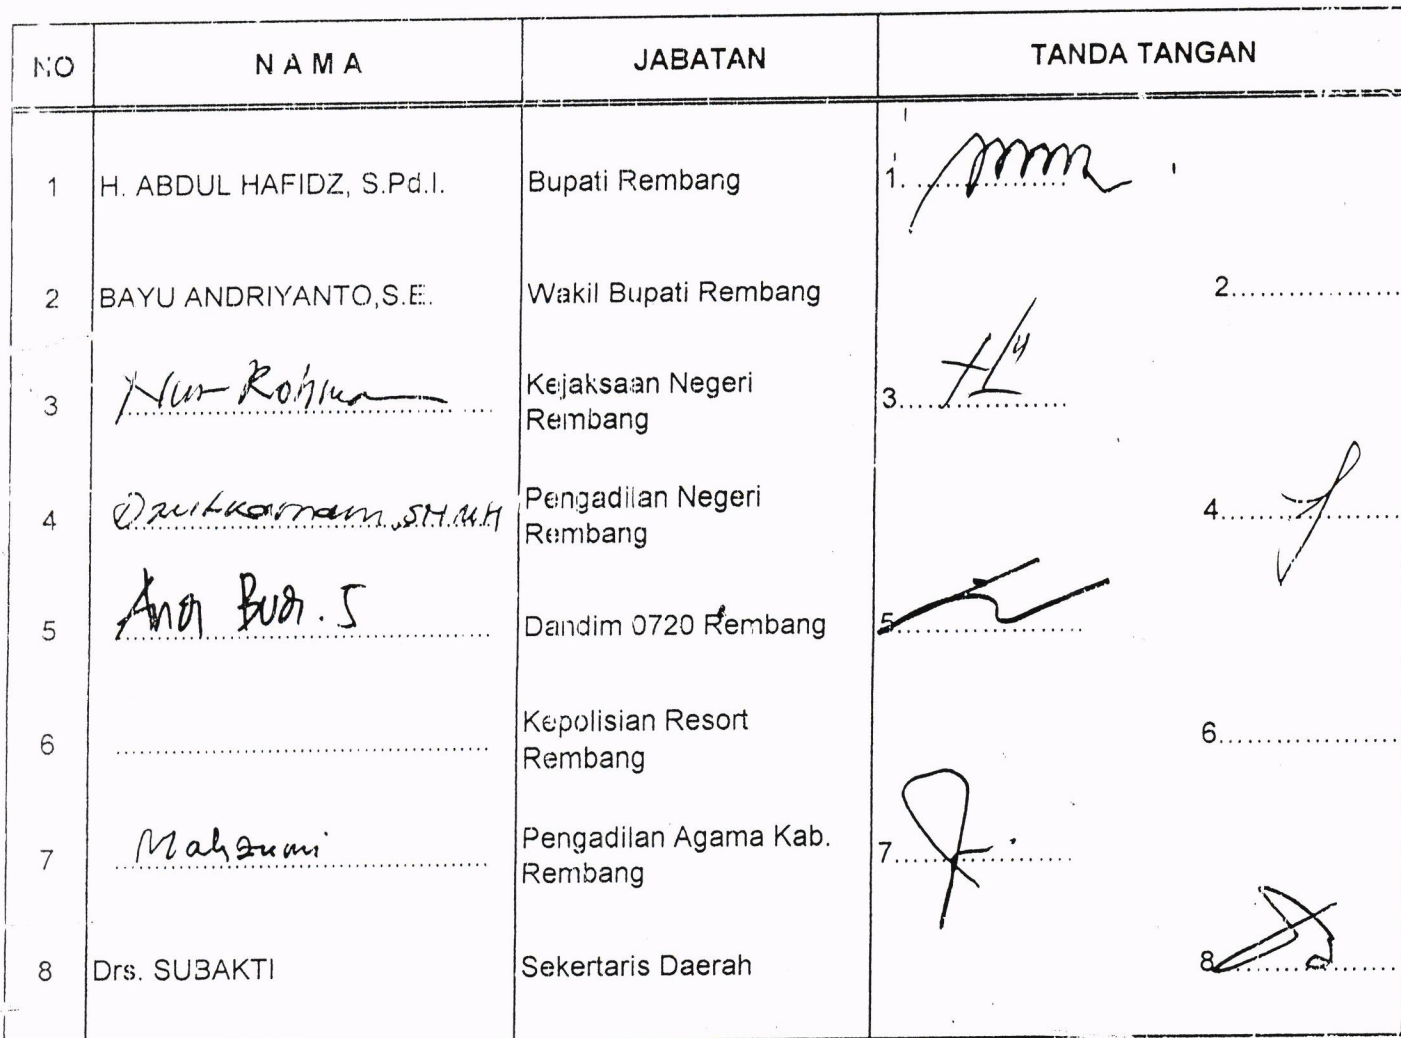 NO NAMA JABATAN TANDA TANGAN
1 H. ABDUL HAFIDZ, S.Pd.I. Bupati Rembang 1..................
2 BAYU ANDRIYANTO,S.E. Wakil Bupati Rembang 2..................
3 Nur Rohma Kejaksaan Negeri
Rembang 3..................
4 Dzulkarnain, SH.MH Pengadilan Negeri
Rembang 4..................
5 Andi Budi. S Dandim 0720 Rembang 5..................
6 .................. Kepolisian Resort
Rembang 6..................
7 Mahzumi Pengadilan Agama Kab.
Rembang 7..................
8 Drs. SUBAKTI Sekertaris Daerah 8..................